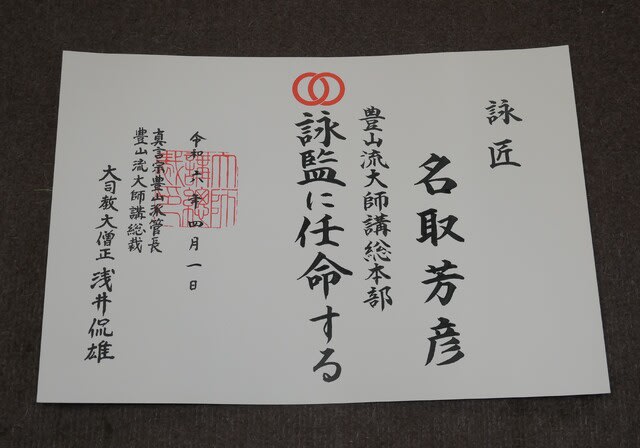 詠匠
名取芳彦
豊山流大師講総本部
詠監に任命する
令和六年四月一日
真言宗豊山派管長
豊山流大師講総裁
大司教大僧正 浅井侃雄